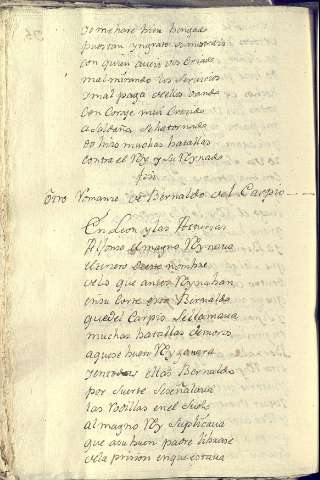 Yo me haré bien bengado
pues tan yngrato os mostrais
con quien aueis vos criado
mal mirando los servicios
y mal paga decilos dando
con Coraje muy Crecido
a Saldaña se ha tornado
do hizo muchas batallas
contra el Rey y su Reynado
fin
Otro Romanze de Bernaldo del Carpio
En Leon y las Asturias
Alfonso el magno Reynaua
el tercero deste nombre
de los que antes Reynaban
en su Corte era Bernaldo
que del Carpio se llamaua
muchas batallas de moros
aquese buen Rey genera
y en todas ellas Bernaldo
por suerte se señalaua
las Rodillas en el Suelo
al magno Rey Suplicaua
que a su buen padre librase
de la prision en que estaua